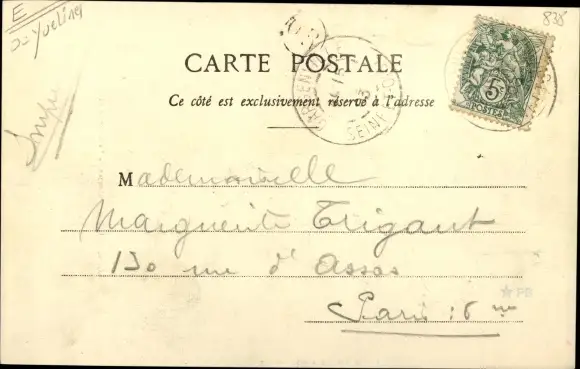 E
Yvelines
838
CARTE POSTALE
Ce côté est exclusivement réservé à l'adresse
ARGENT
SEINE
5
POSTES
Mademoiselle
Marguerite Trigant
130 rue d'Assas
Paris : 6me
PB